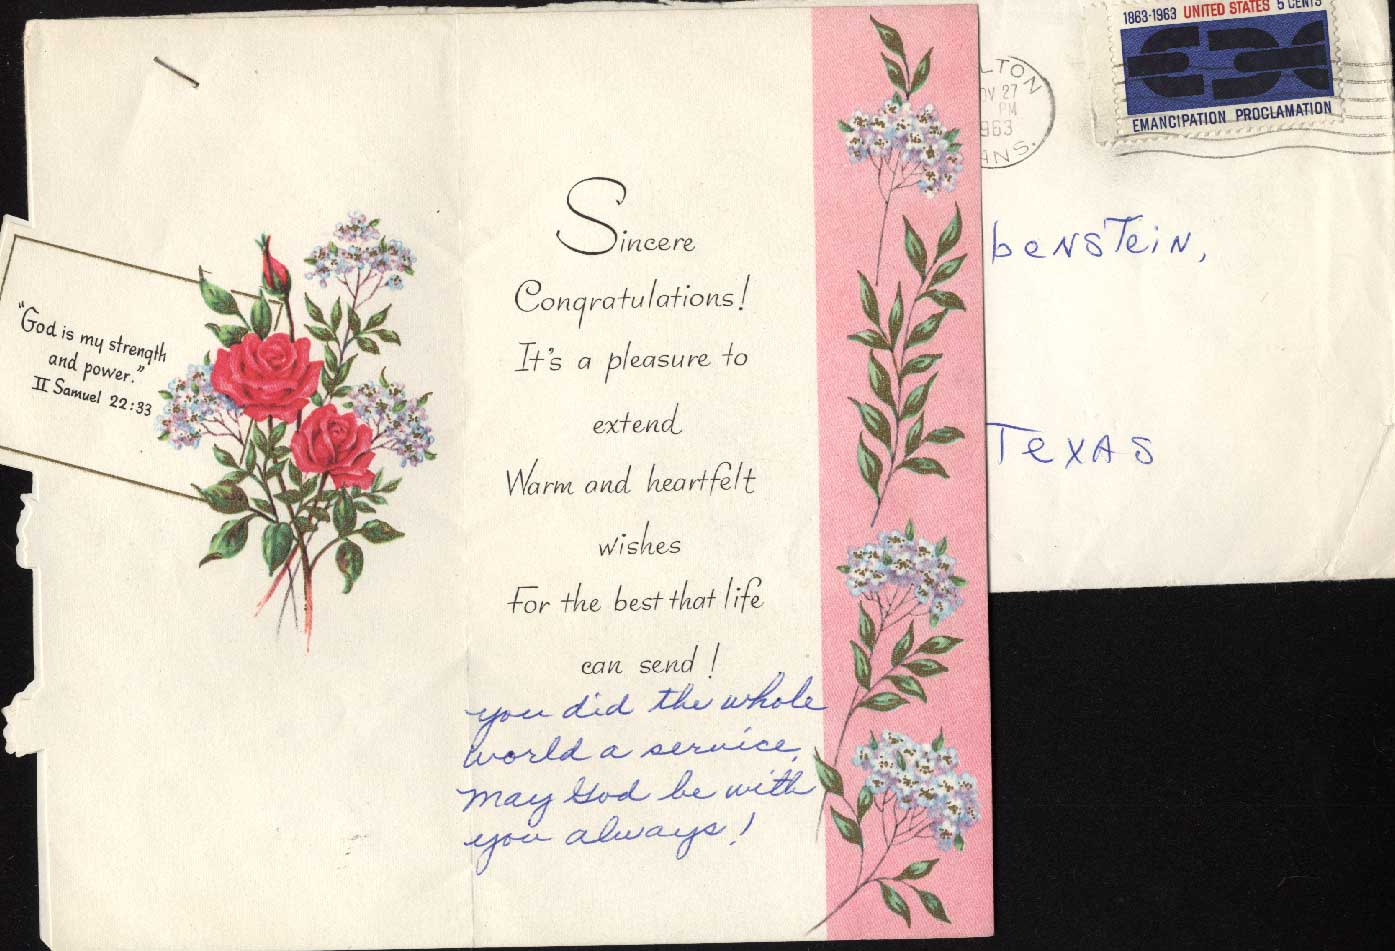 "God is my strength
and power."
II Samuel 22:33
Sincere
Congratulations!
It's a pleasure to
extend
Warm and heartfelt
wishes
For the best that life
can send!
you did the whole
world a service,
may God be with
you always!
LTON
OV 27
PM
963
ANS.
1863-1963 UNITED STATES 5 CENTS
EMANCIPATION PROCLAMATION
benstein,
Texas